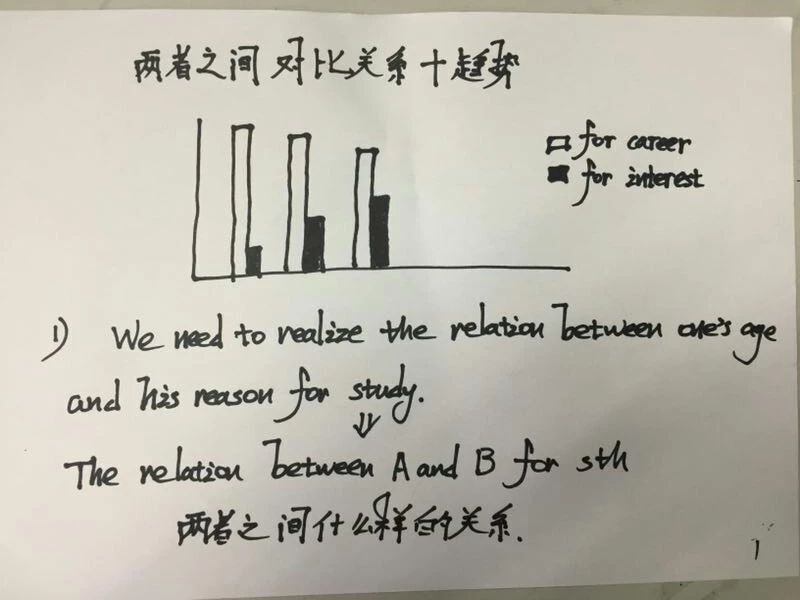 两者之间对比关系+趋势
for career
for interest
1) We need to realize the relation between one's age
and his reason for study.
The relation between A and B for sth
两者之间什么样的关系.
1